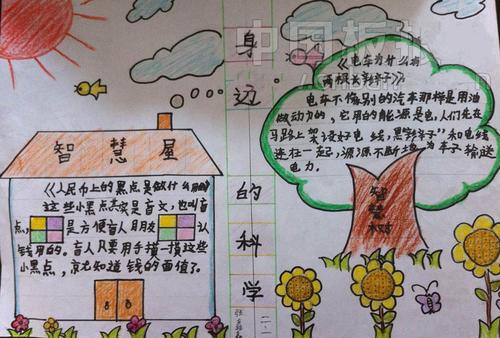 身边的科学
智慧屋
《人民币上的黑点是做什么用的
这些小黑点其实是盲文,也叫盲
点,是方便盲人朋友认
钱用的。盲人只要用手摸一摸这些
小黑点,就知道钱的面值了。
《电车为什么有
两根长辫子》
电车不像别的汽车那样是用油
做动力的,它用的能源是电,人们先在
马路上架设好电线,黑"辫子"和电线
连在一起,源源不断地为车子输送
电力。
智慧树